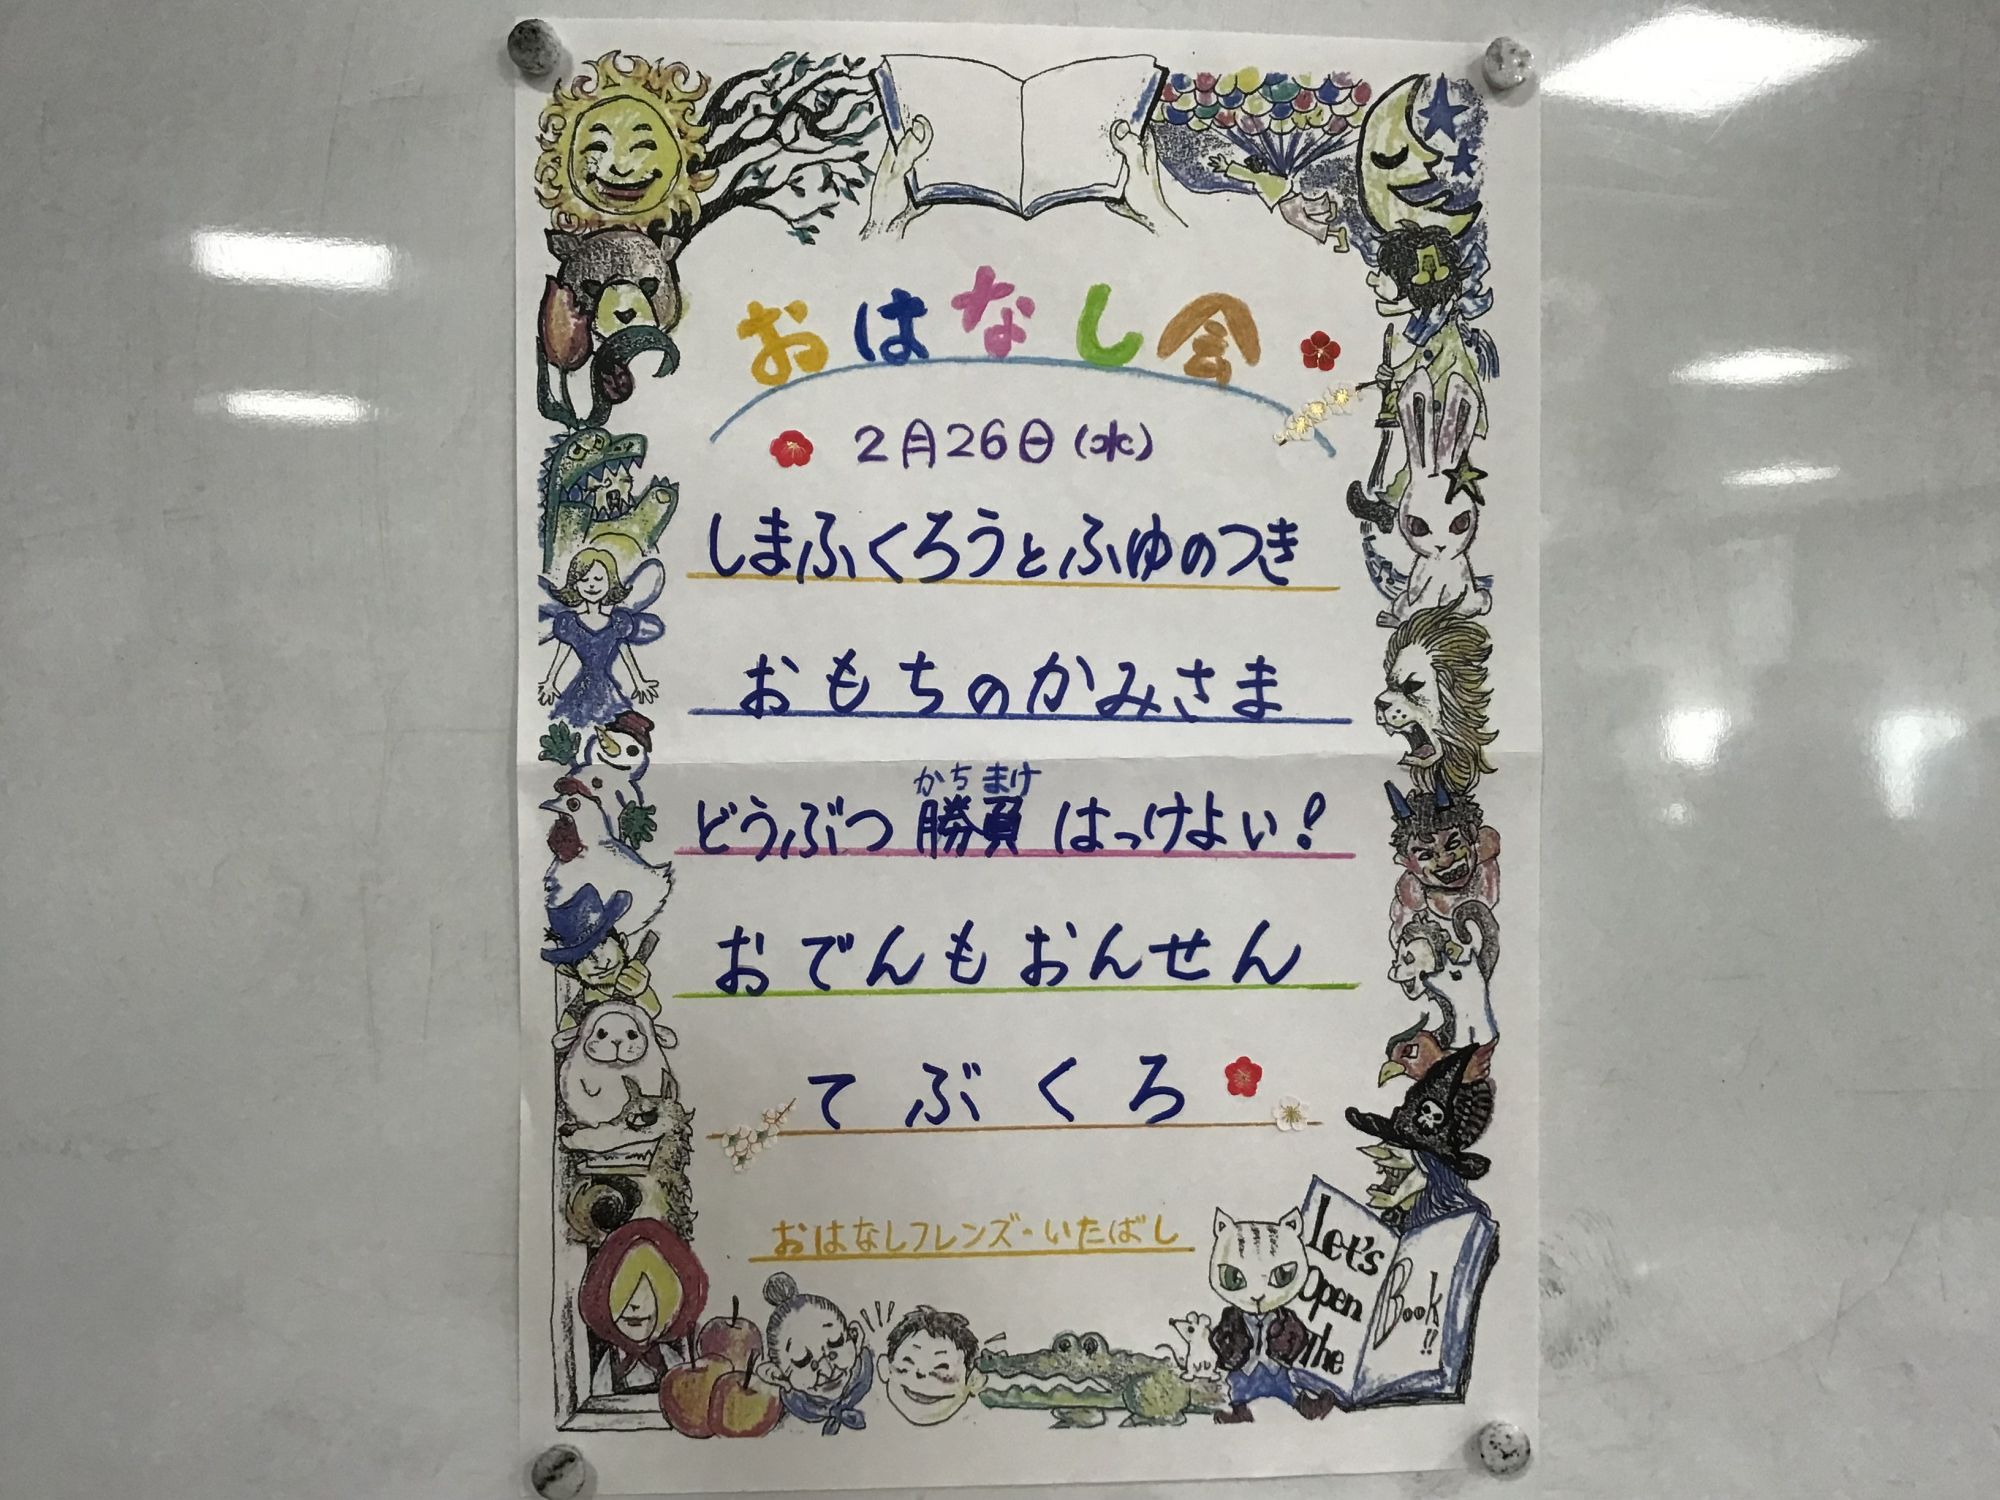 おはなし会
2月26日(水)
しまふくろうとふゆのつき
おもちのかみさま
かち まけ
どうぶつ 勝負 はっけよい!
おでんもおんせん
てぶくろ
おはなしフレンズ・いたばし
Let's
Open
The
Book!!